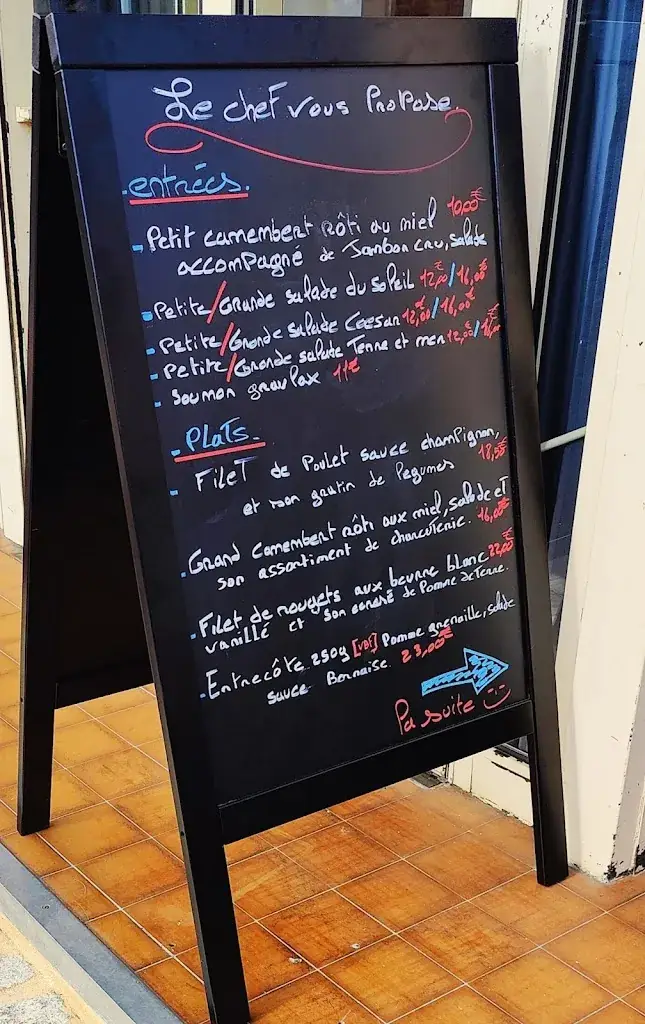 Le chef vous Propose.
entrées.
- Petit camembert rôti au miel 10,00€
accompagné de Jambon cru, salade
- Petite/Grande salade du soleil 12,00€/16,00€
- Petite/Grande salade Ceasar 12,00€/16,00€
- Petite/Grande salade Terre et mer 12,00€/16,00€
- Soumon gravlax 11€
- Plats.
- Filet de Poulet sauce champignon, 18,50€
et son gratin de legumes
- Grand camembert rôti aux miel, salade et
son assortiment de charcuterie. 16,00€
- Filet de rougets aux beurre blanc 22,00€
vanillé et son de Pomme de Terre.
- Entrecôte 250g [VBF] Pomme grenaille, salade
sauce Bernaise 23,00€
La suite